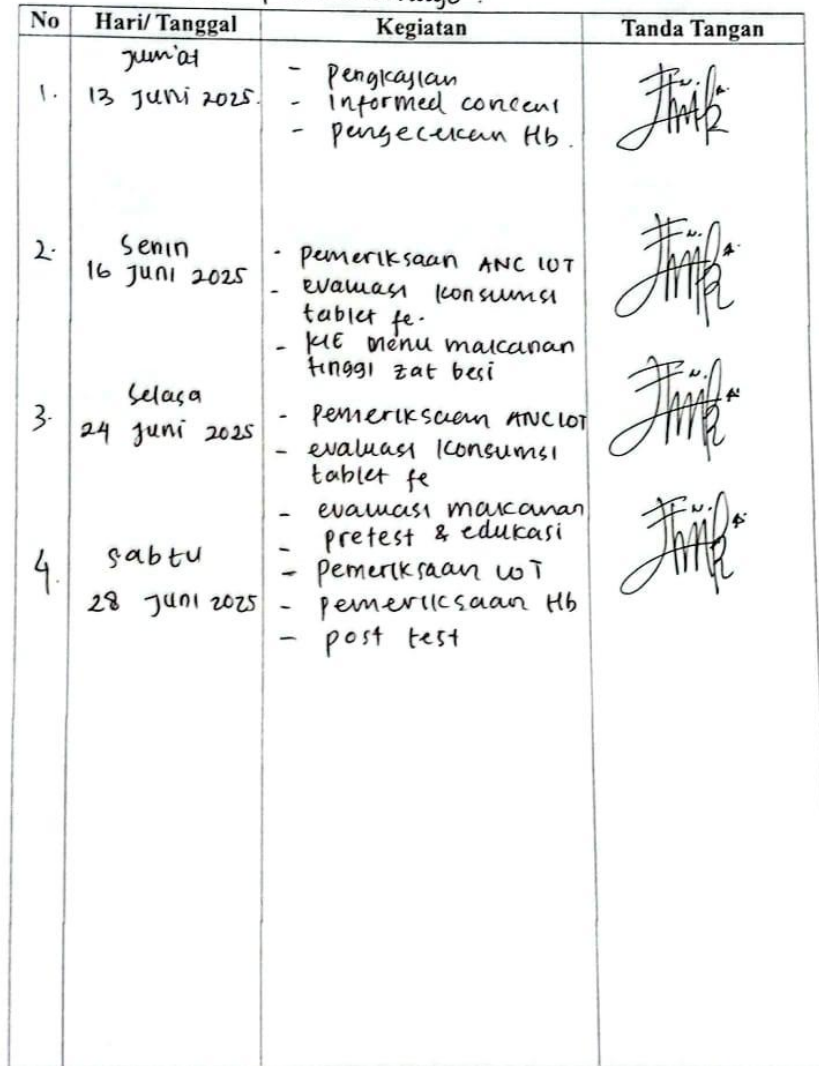 No Hari/ Tanggal Kegiatan Tanda Tangan
1. Jum'at
13 Juni 2025.
- Pengkajian
- Informed concent
- pengecekan Hb.
2. Senin
16 Juni 2025
- Pemeriksaan ANC 10T
- evaluasi konsumsi
tablet fe.
- KIE menu makanan
tinggi zat besi
3. Selasa
24 Juni 2025
- Pemeriksaan ANC 10T
- evaluasi konsumsi
tablet fe
- evaluasi makanan
- pretest & edukasi
4. Sabtu
28 Juni 2025
- Pemeriksaan 10T
- pemeriksaan Hb
- post test